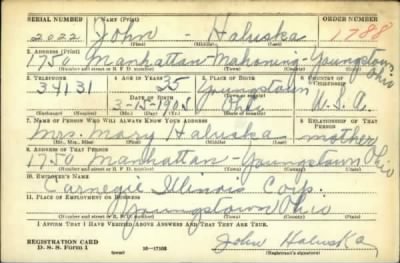 SERIAL NUMBER 1. NAME (Print) ORDER NUMBER
2022 John - Haluska 1788
(First) (Middle) (Last)
2. ADDRESS (Print)
1750 Manhattan - Mahoning - Youngstown Ohio
(Number and street or R. F. D. number) (Town) (County) (State)
3. TELEPHONE 4. AGE IN YEARS 5. PLACE OF BIRTH 6. COUNTRY OF CITIZENSHIP
34131 35 Youngstown
DATE OF BIRTH (Town or county)
3-15-1905 Ohio U.S.A.
(Exchange) (Number) (Mo.) (Day) (Yr.) (State or country)
7. NAME OF PERSON WHO WILL ALWAYS KNOW YOUR ADDRESS 8. RELATIONSHIP OF THAT PERSON
Mrs. Mary Haluska mother
(Mr., Mrs., Miss) (First) (Middle) (Last)
9. ADDRESS OF THAT PERSON
1750 Manhattan - Youngstown Ohio
(Number and street or R. F. D. number) (Town) (County) (State)
10. EMPLOYER'S NAME
Carnegie Illinois Corp.
11. PLACE OF EMPLOYMENT OR BUSINESS
Youngstown Ohio
(Number and street or R. F. D. number) (Town) (County) (State)
I AFFIRM THAT I HAVE VERIFIED ABOVE ANSWERS AND THAT THEY ARE TRUE.
REGISTRATION CARD
D. S. S. Form 1 16-17105 John Haluska
(Registrant's signature)